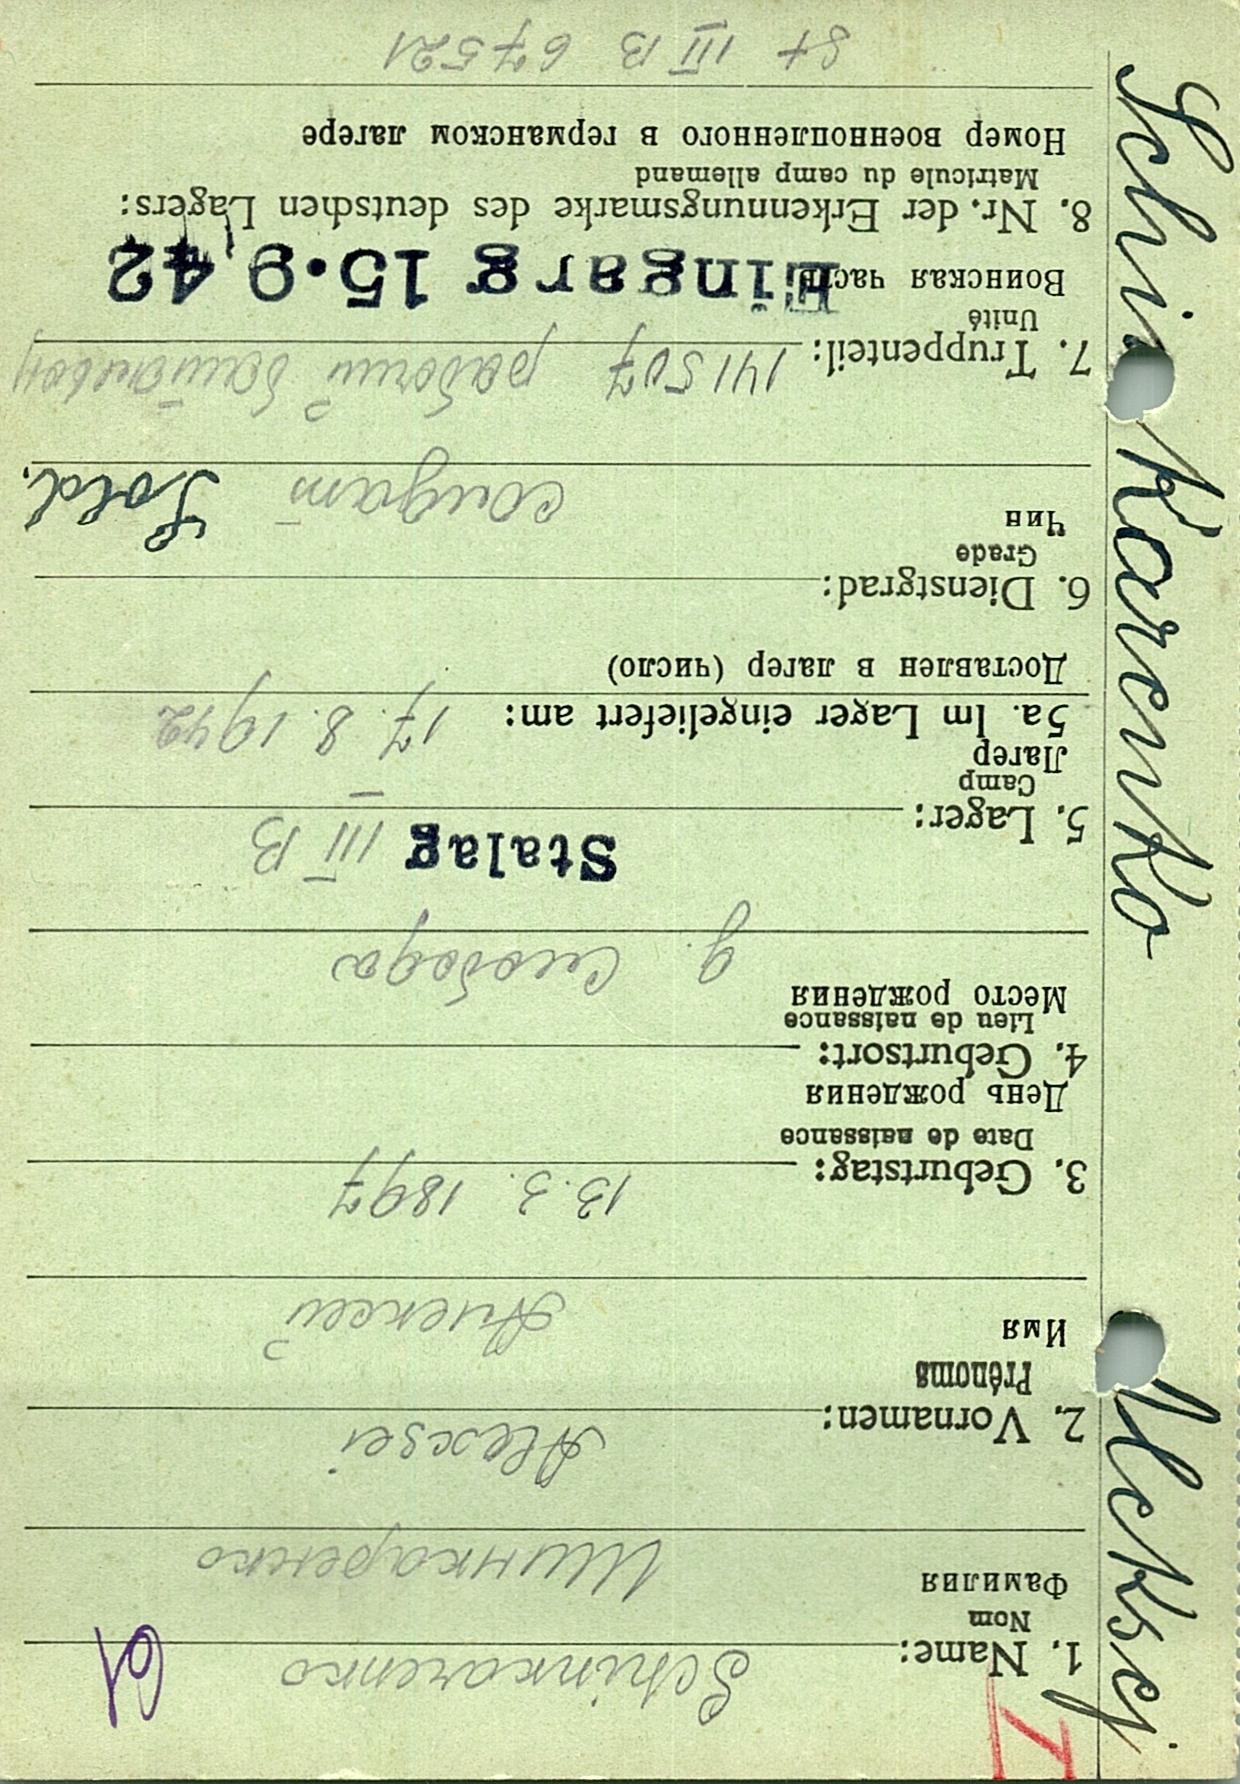 I
Schinkarenko Aleksej
1. Name: Schinkarenko
Nom
Фамилия
Шинкаренко
2. Vornamen: Alexsei
Prénoms
Имя
Алексей
3. Geburtstag: 13. 3. 1897
Date de naissance
День рождения
4. Geburtsort:
Lieu de naissance
Место рождения
д. Слобода
5. Lager: Stalag III B
Camp
Лагер
5a. Im Lager eingeliefert am: 17. 8. 1942
Доставлен в лагер (число)
6. Dienstgrad:
Grade
Чин
солдат Sold.
7. Truppenteil: 141507 рабочий
Unité
Воинская часть
Eingarg 15.9.42
8. Nr. der Erkennungsmarke des deutschen Lagers:
Matricule du camp allemand
Номер военнопленного в германском лагере
St III B 67521